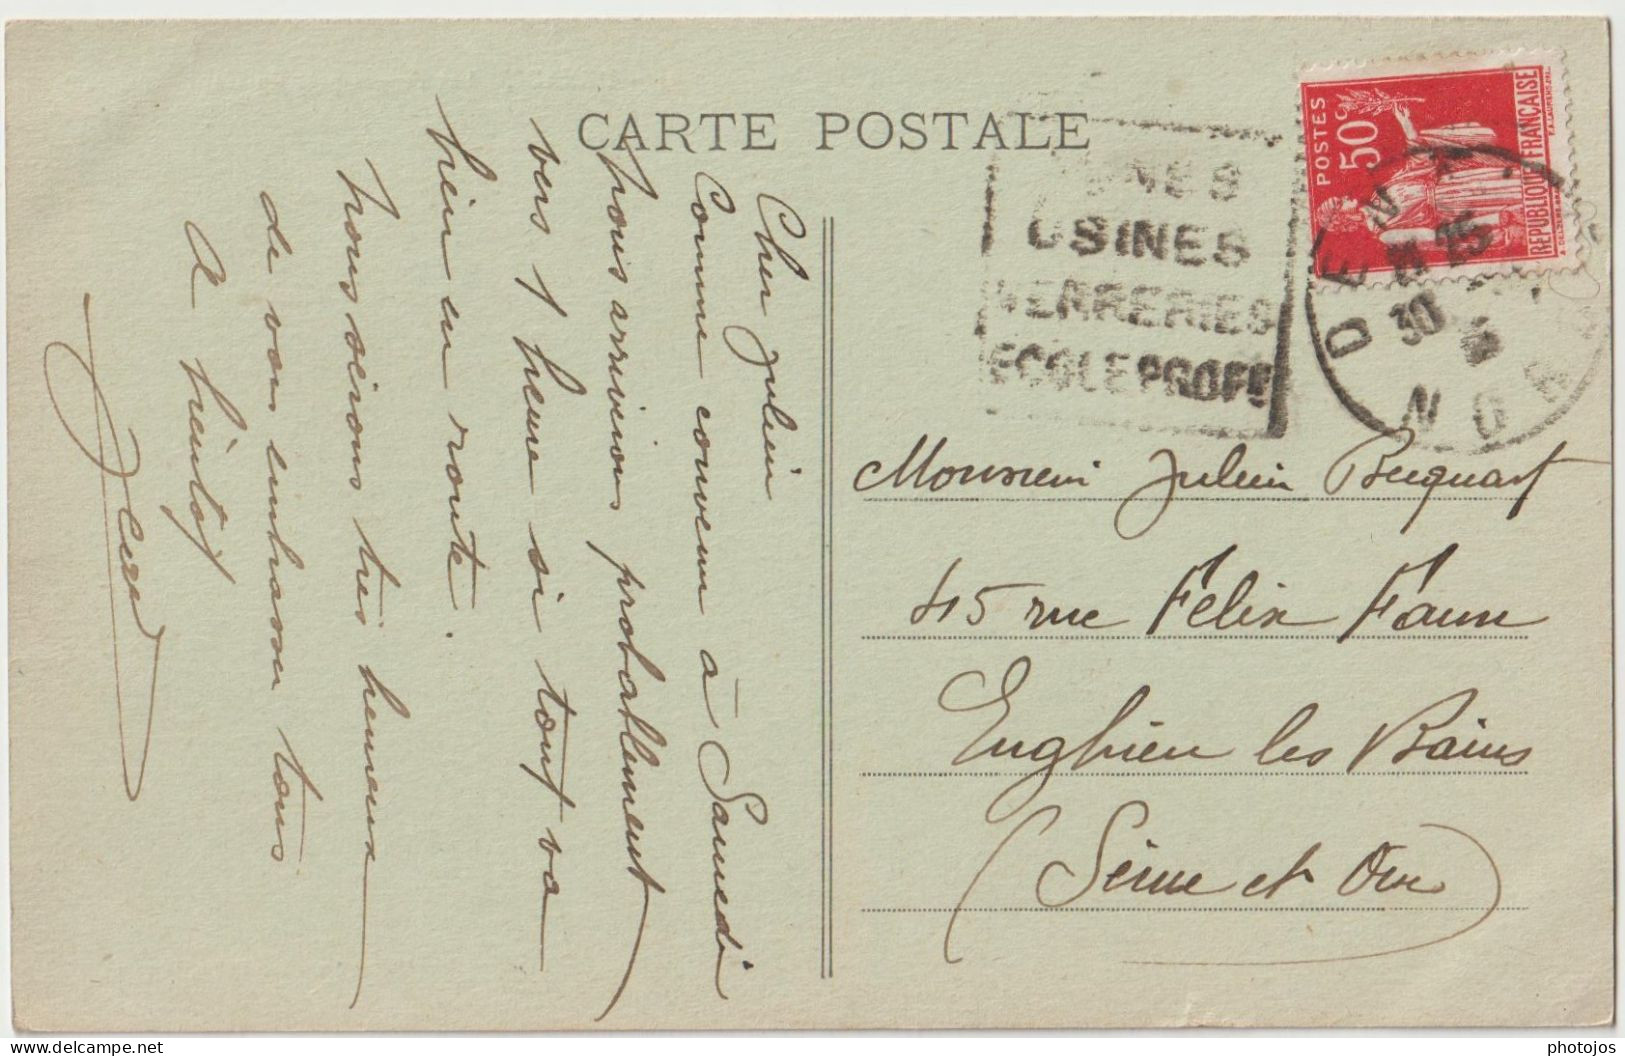 CARTE POSTALE
Cher Julien
Comme convenu à Samedi
nous arriverons probablement
vers 1 heure si tout va
bien en route.
Nous serons très heureux
de vous embrasser tous
A bientôt
USINES
VERRERIES
ECOLE PROFF
DENAIN
21 25
30
NORD
POSTES
50c
REPUBLIQUE FRANÇAISE
Monsieur Julien Becquart
45 rue Felix Faure
Enghien les Bains
(Seine et Oise)
delcampe.net
photojos